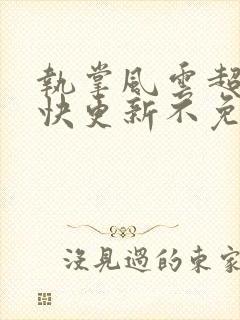 執掌風雲超
快更新不免
沒見過的東家